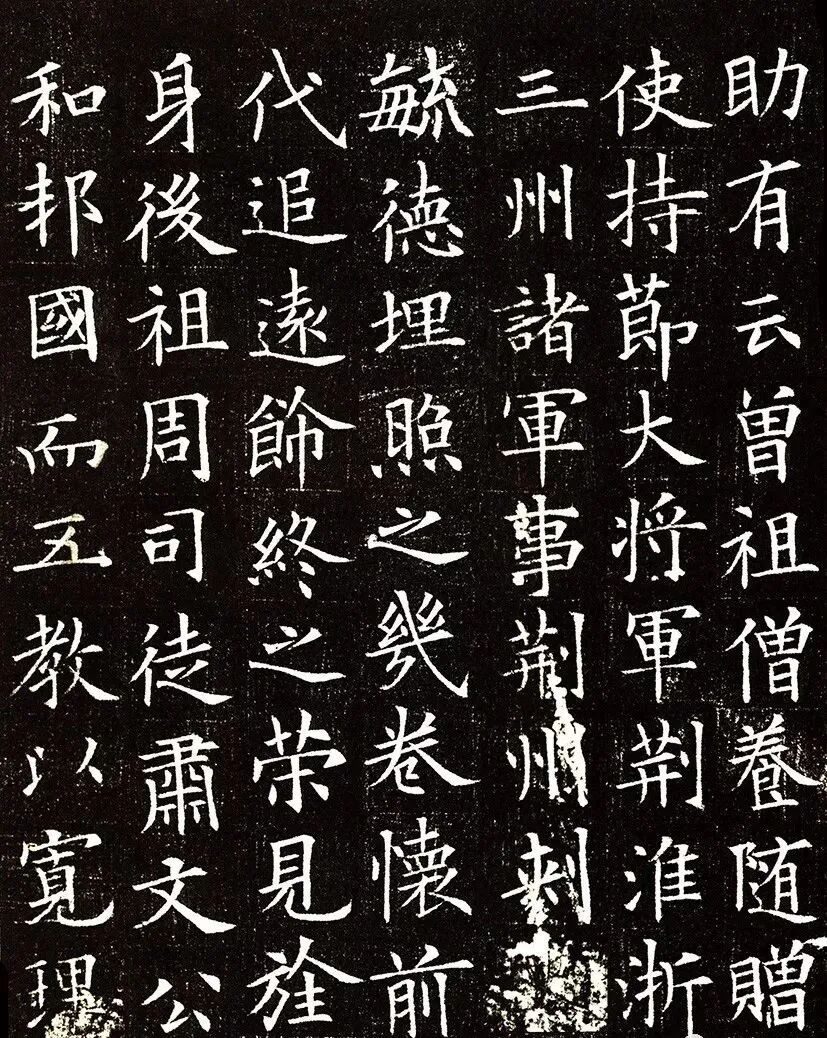 助有云曾祖僧養随贈
使持節大將軍荆淮浙
三州諸軍事荆州刺
毓德埋照之幾卷懷前
代追遠飾終之荣見旌
身後祖周司徒肅文公
和邦國而五教以寬理